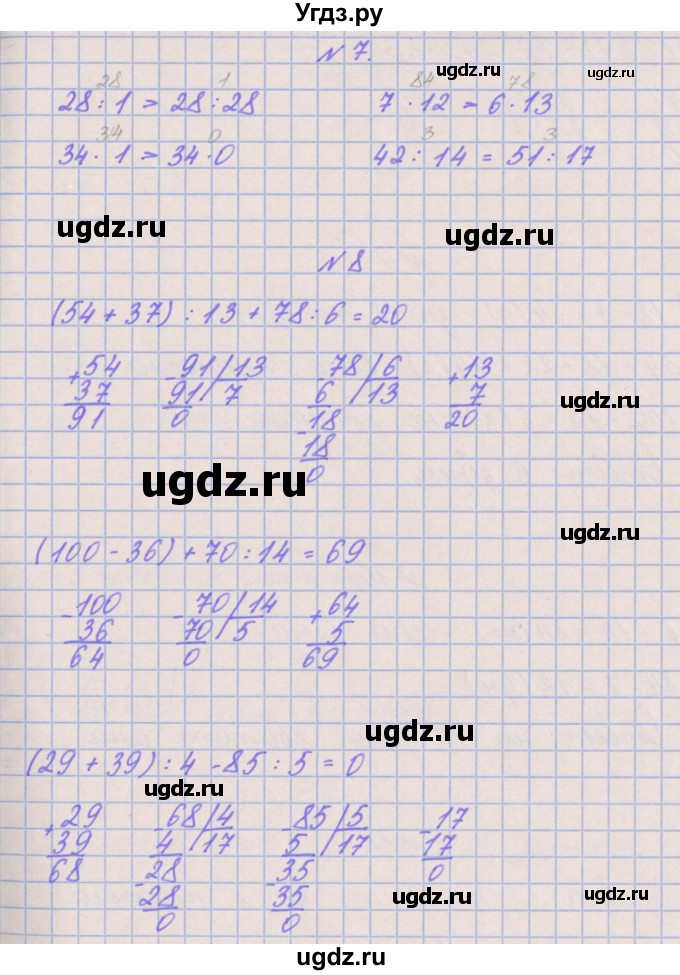 Угдз.ру
N 7.
28 1 84 78
28 : 1 > 28 : 28 7 · 12 > 6 · 13
34 0 3 3
34 · 1 > 34 · 0 42 : 14 = 51 : 17
N 8
(54 + 37) : 13 + 78 : 6 = 20
+ 54 - 91 | 13 - 78 | 6 + 13
37 91 | 7 6 | 13 7
91 0 - 18 20
18
0
(100 - 36) + 70 : 14 = 69
- 100 - 70 | 14 + 64
36 70 | 5 5
64 0 69
(29 + 39) : 4 - 85 : 5 = 0
+ 29 - 68 | 4 - 85 | 5 - 17
39 4 | 17 5 | 17 17
68 - 28 - 35 0
28 35
0 0
ugdz.ru
ugdz.ru
ugdz.ru
ugdz.ru
ugdz.ru
ugdz.ru
ugdz.ru
ugdz.ru
ugdz.ru
ugdz.ru
ugdz.ru
ugdz.ru